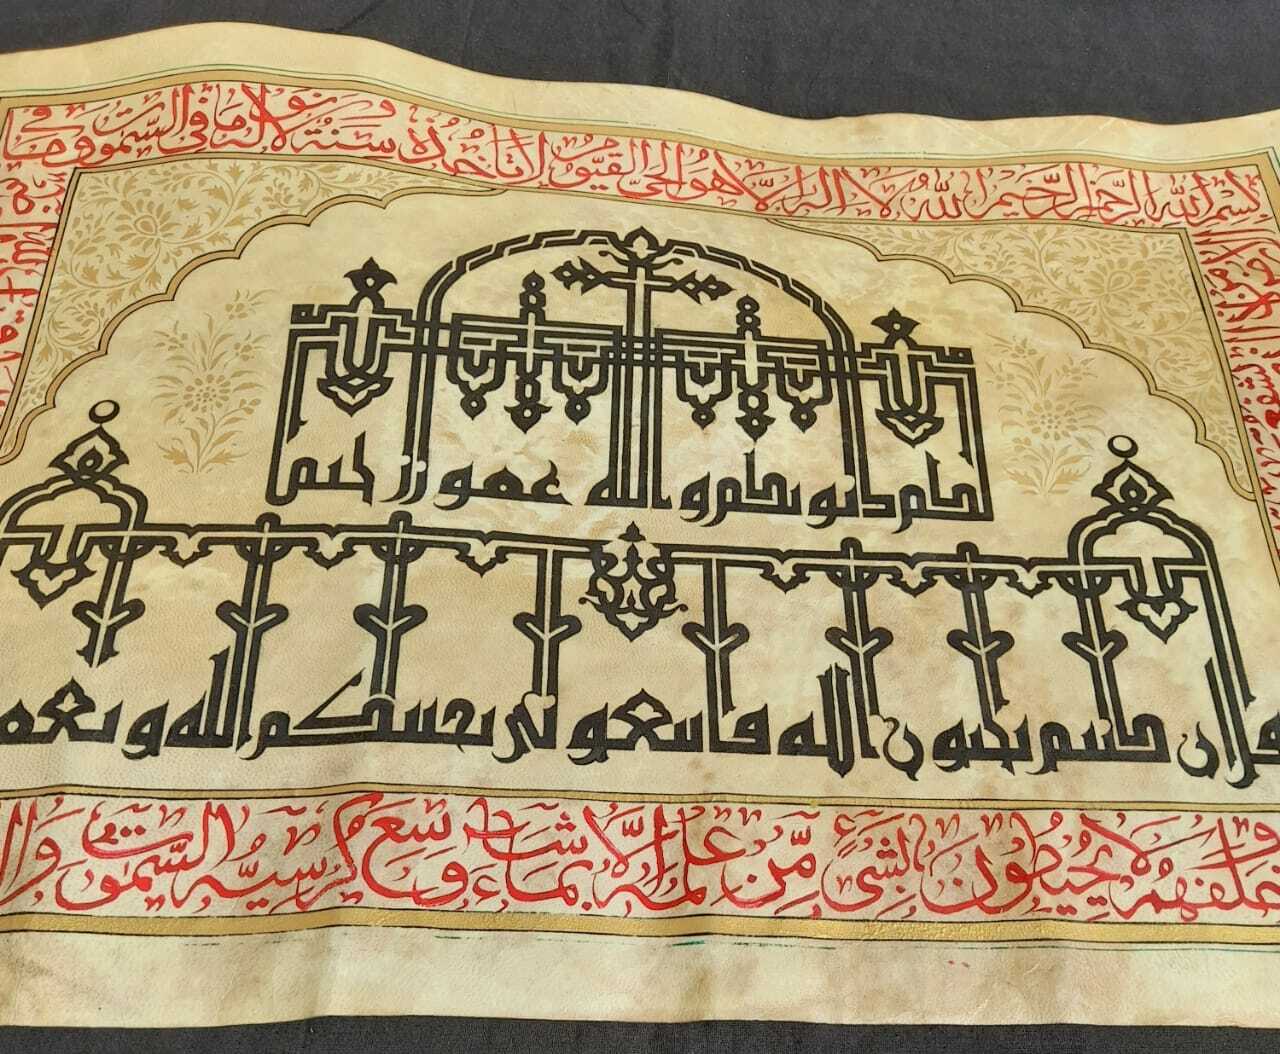 بسم الله الرحمن الرحيم الله لا اله الا هو الحي القيوم لا تاخذه سنة ولا نوم له ما في السموت وما في
قل ان كنتم تحبون الله فاتبعوني يحببكم الله ويغفر
لكم ذنوبكم والله غفور رحيم
خلفهم ولا يحيطون بشيء من علمه الا بما شاء وسع كرسيه السموت وال